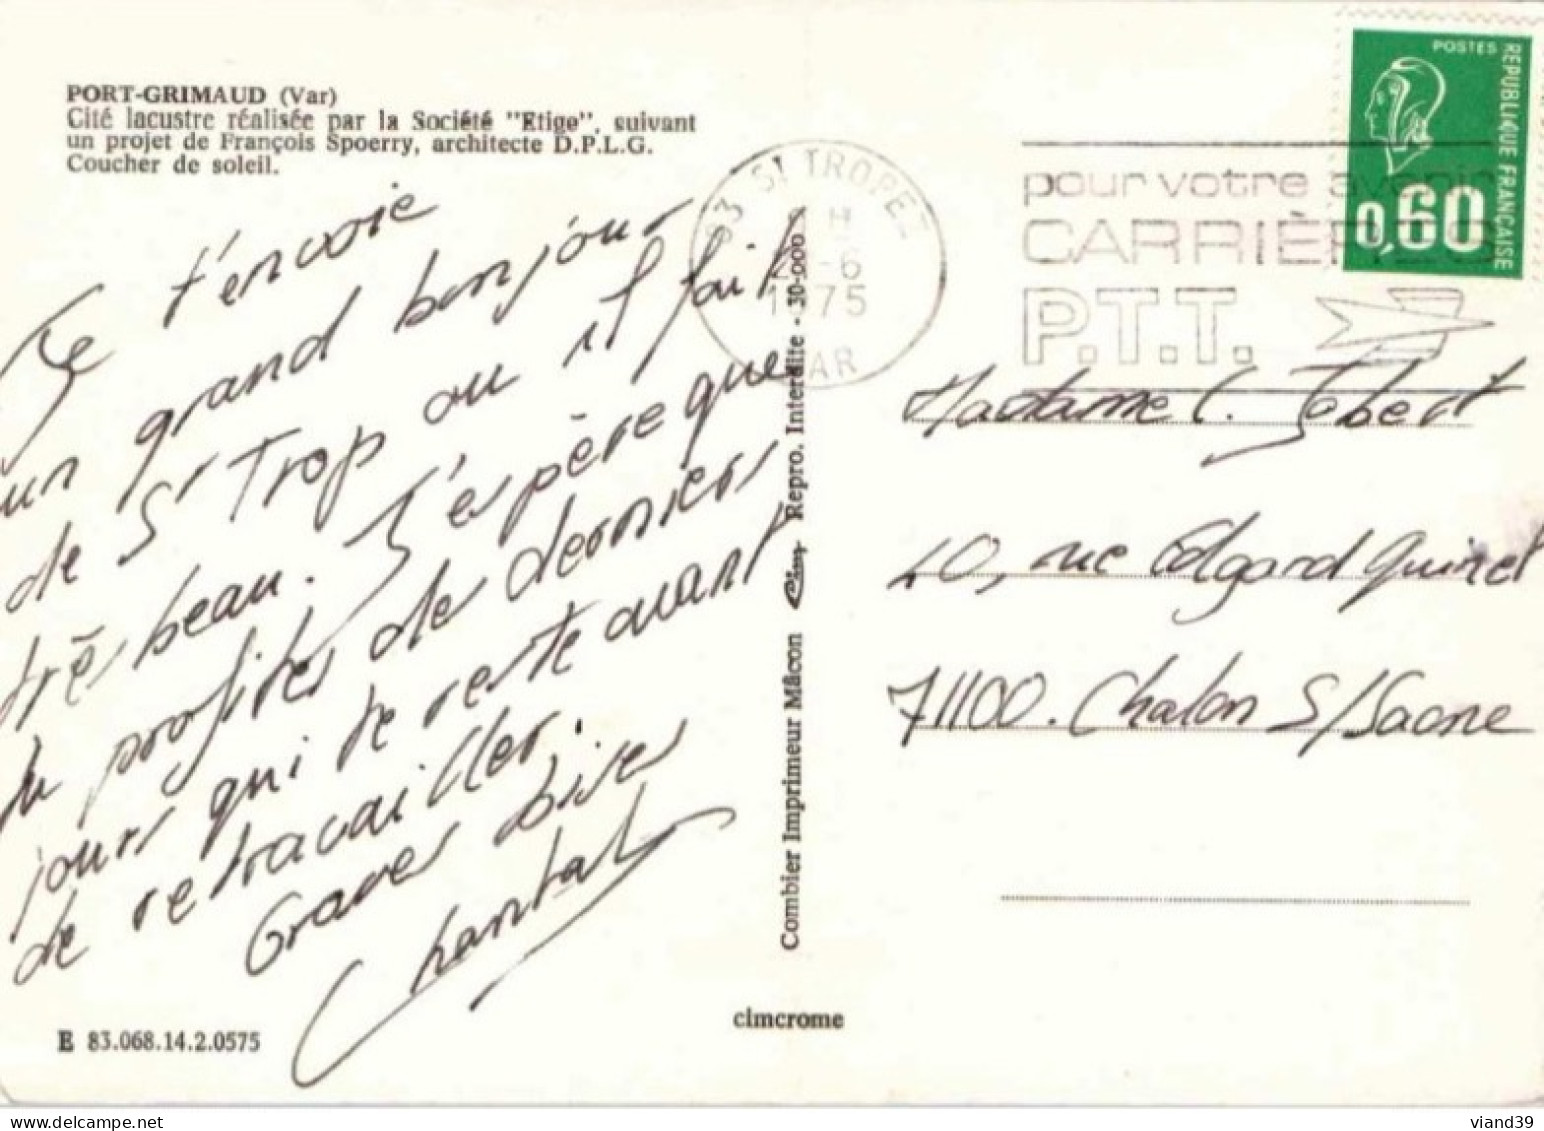 PORT-GRIMAUD (Var)
Cité lacustre réalisée par la Société "Etige", suivant
un projet de François Spoerry, architecte D.P.L.G.
Coucher de soleil.
Je t'envoie
un grand bonjour
de St Trop ou il fait
très beau. J'espère que
tu profites de derniers
jours qui te reste avant
de retravailler.
Graves bises
Chantal
E 83.068.14.2.0575
Combier Imprimeur Mâcon Cim Repro. Interdite - 30-000
cimcrome
83 ST TROPEZ
H
-6
1975
VAR
pour votre avenir
CARRIÈRES
P.T.T.
POSTES
REPUBLIQUE FRANÇAISE
0,60
Madame C. Jobert
20, rue Edgard Quinet
71100. Chalon S/Saone
delcampe.net
viand39